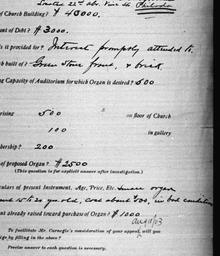 of Church Building? $ 40000.
nt of Debt? $ 3000.
is it provided for? Interest promptly attended to.
ch built of? Green Stone front & brick
ng Capacity of Auditorium for which Organ is desired? 500
rising 500 on floor of Church
100 in gallery
bership? 200
of proposed Organ? $ 2500
(This question is for explicit answer after investigation.)
ulars of present Instrument, Age, Price, Etc. organ
15 to 20 yrs old, cost about in bad condition
nt already raised toward purchase of Organ? $ 1000.
To facilitate Mr. Carnegie's consideration of your appeal, will you
ige by filling in the above?
Precise answer to each question is necessary.